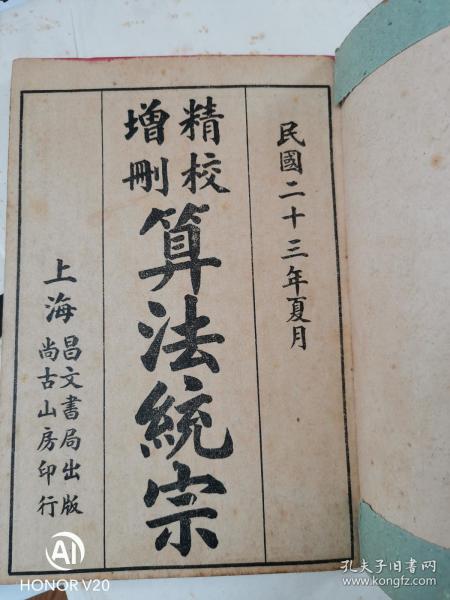 民國二十三年夏月
精校
增刪
算法統宗
上海
昌文書局出版
尚古山房印行
AI
HONOR V20
孔夫子旧书网
kongfz.com